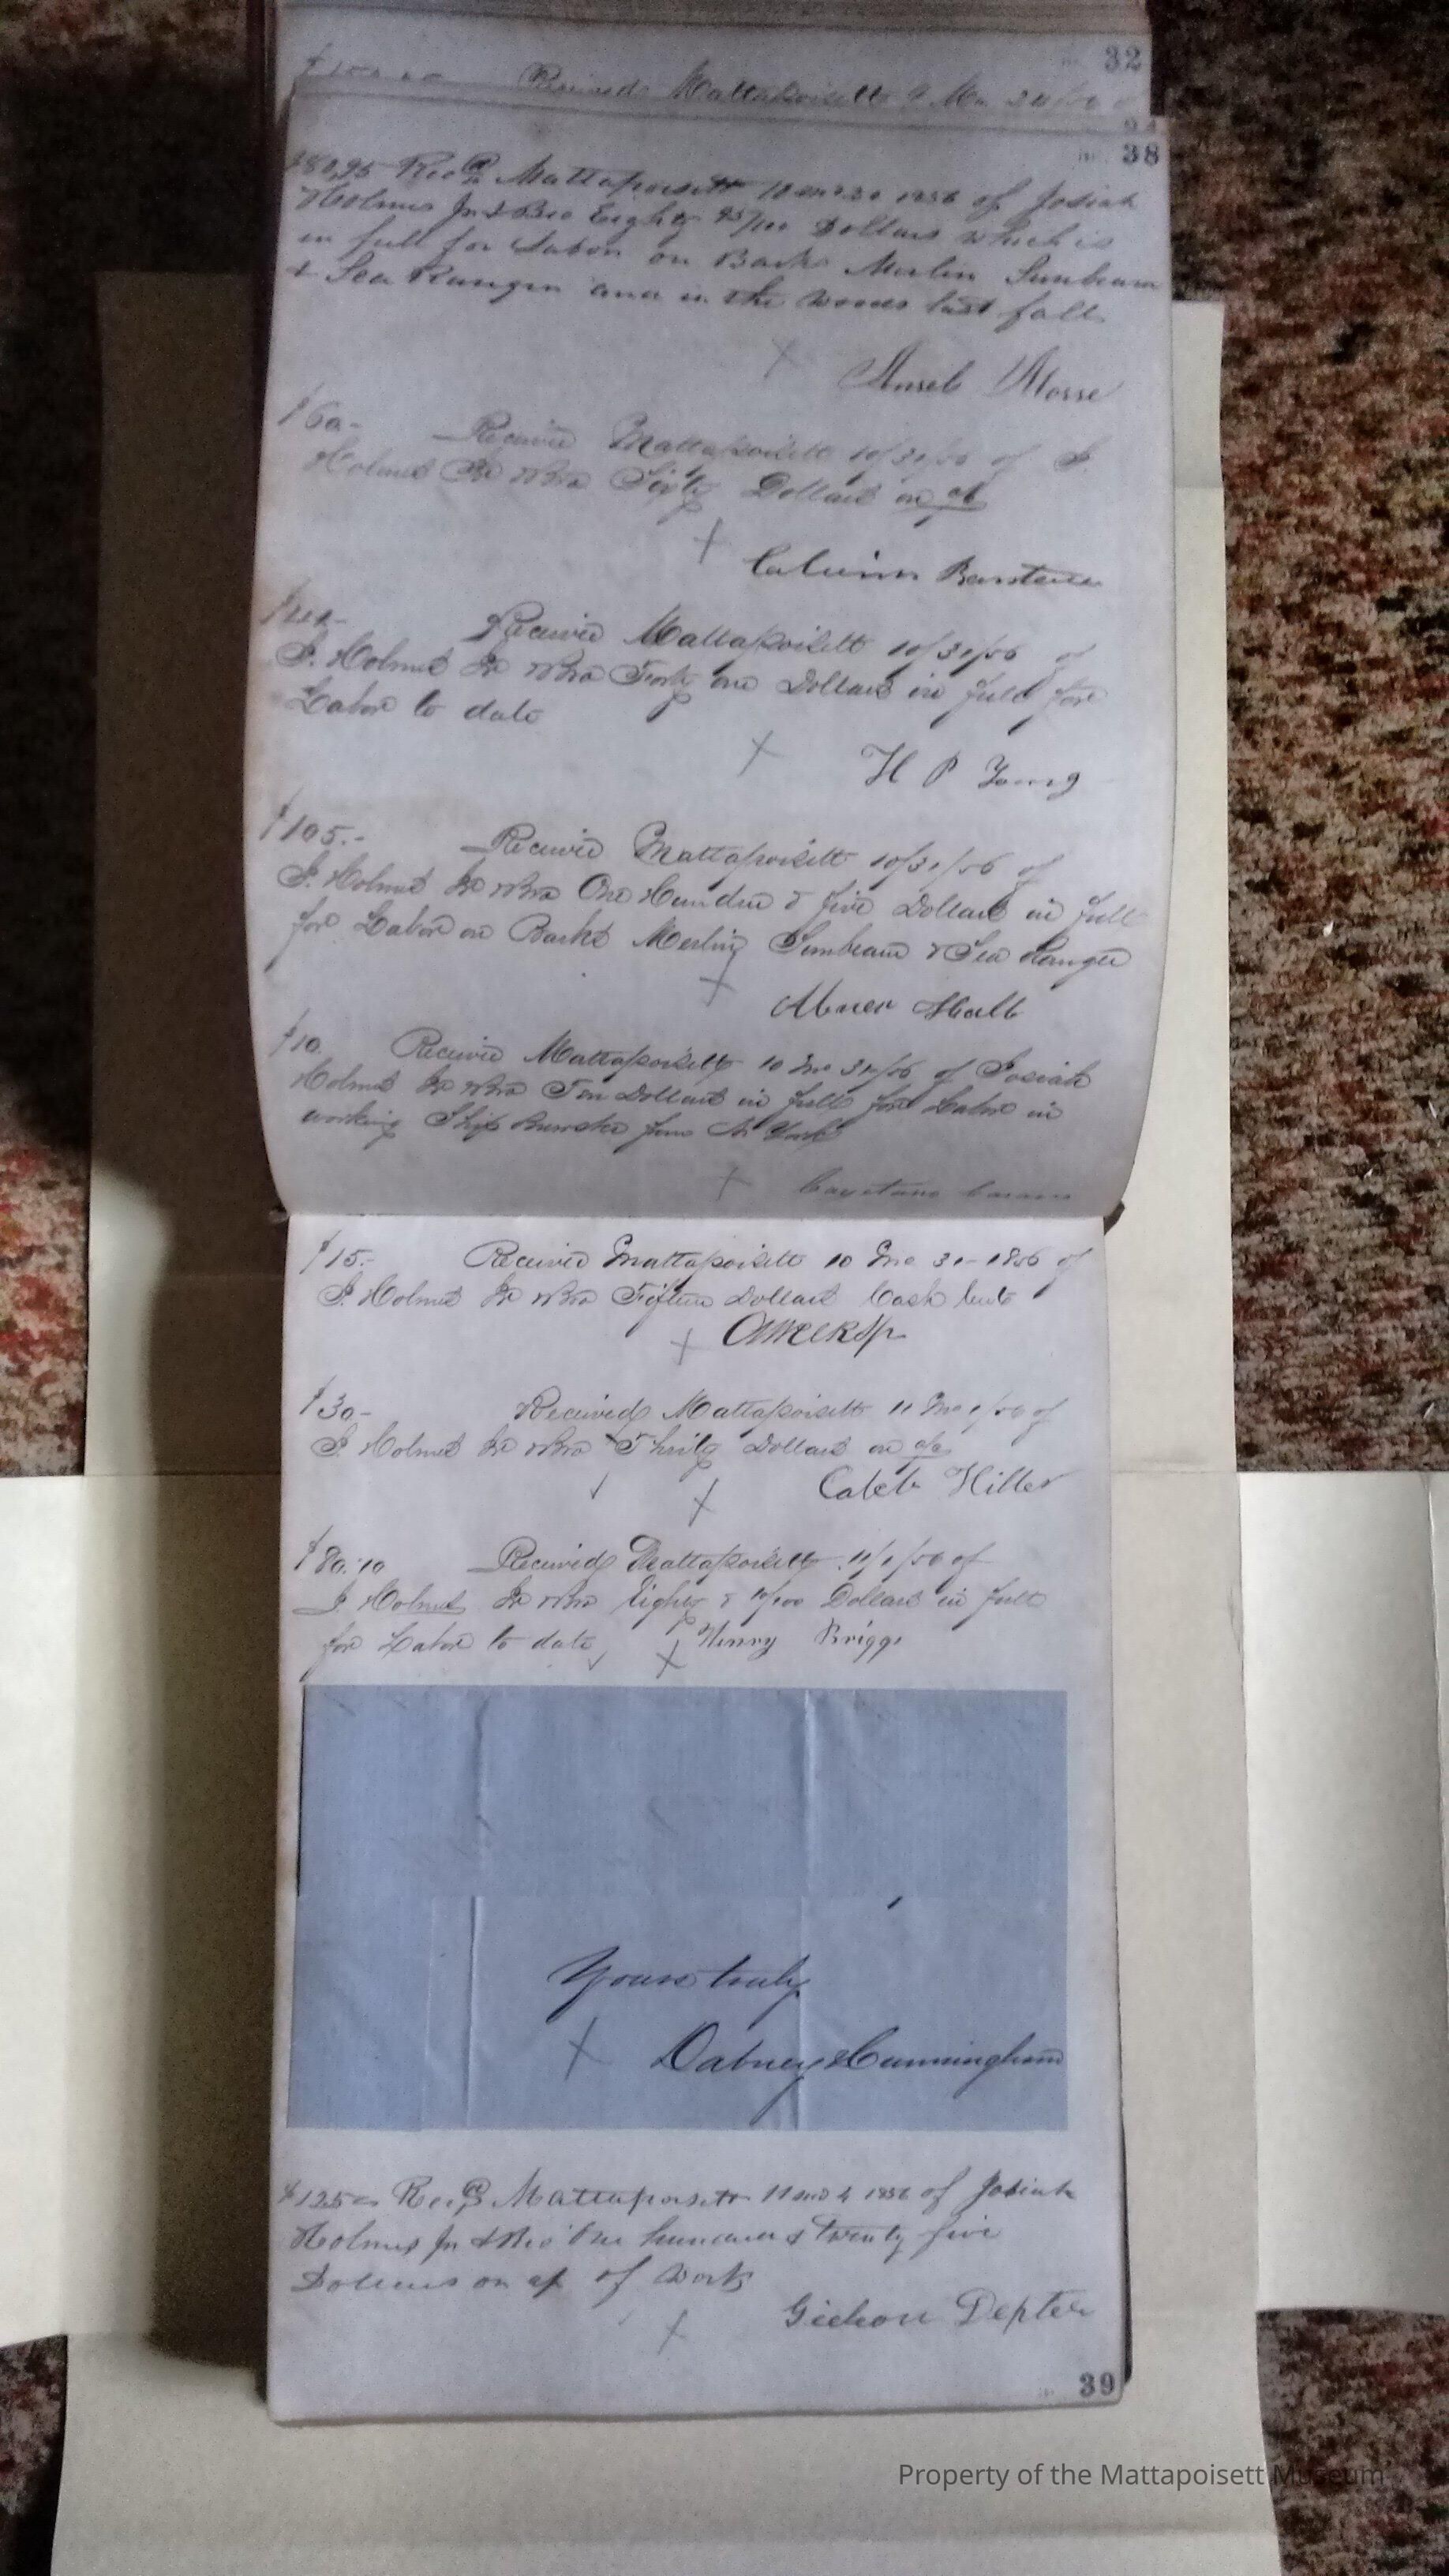 32
Received Mattapoisett 9 Mo
38
$80,95 Recd Mattapoisett 10 mo 30 1856 of Josiah
Holmes Jr & Bro Eighty 95/100 Dollars which is
in full for Labor on Bark Merlin Sunbeam
& Sea Ranger and in the woods last fall
Ansel Morse
$60- Received Mattapoisett 10/31/56 of J.
Holmes Jr & Bro Sixty Dollars on a/c
Calvin
Received Mattapoisett 10/31/56 of
J. Holmes Jr & Bro Forty one Dollars in full for
Labor to date
H P Young
$105.- Received Mattapoisett 10/31/56 of
J. Holmes Jr & Bro One Hundred & five Dollars in full
for Labor on Barks Merlin, Sunbeam & Sea Ranger
Abner Hall
$10. Received Mattapoisett 10 Mo 31/56 of Josiah
Holmes Jr & Bro Ten Dollars in full for Labor in
working Ship from N. York
Cayetano
$15.- Received Mattapoisett 10 Mo 31- 1856 of
J. Holmes Jr & Bro Fifteen Dollars Cash
$30- Received Mattapoisett 11 Mo 1/56 of
J. Holmes Jr & Bro Thirty Dollars on a/c
Caleb Hiller
$80.10 Received Mattapoisett 11/1/56 of
J. Holmes Jr & Bro Eighty & 10/100 Dollars in full
for Labor to date
Henry Briggs
Yours truly
Dabney & Cunningham
$125= Recd Mattapoisett 11 mo 4 1856 of Josiah
Holmes Jr & Bro One hundred & twenty five
Dollars on a/c of Work
Gideon Depter
39
Property of the Mattapoisett Museum